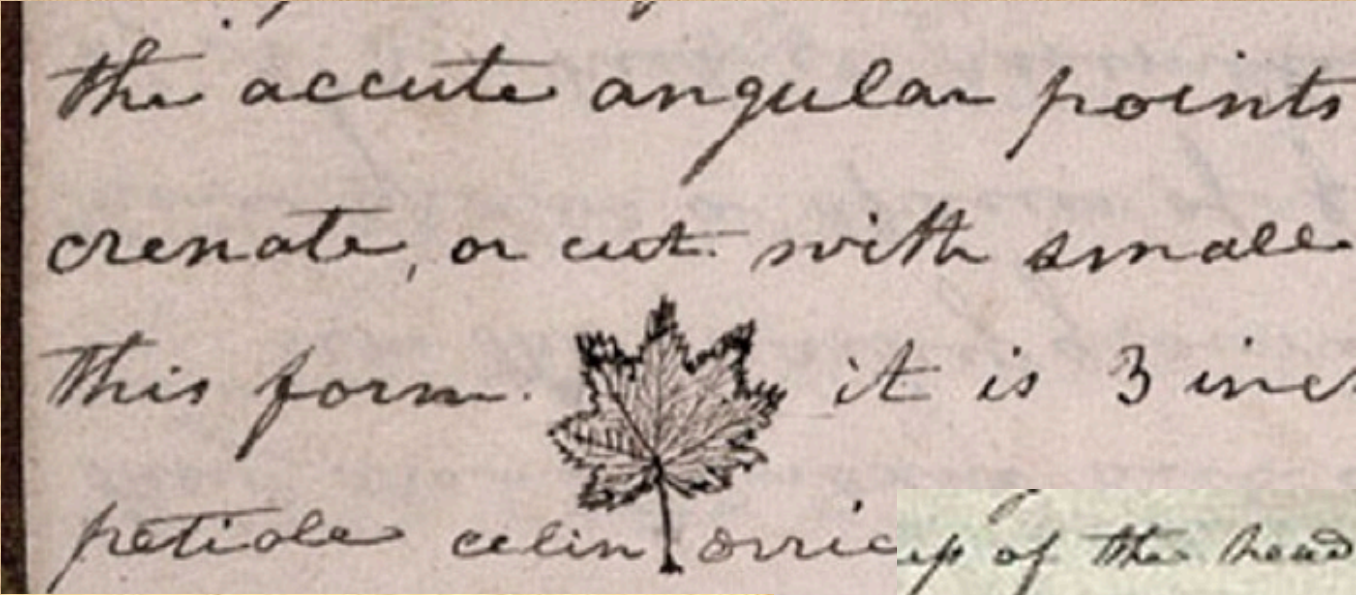 the accute angular points
crenate, or cut with small
this form. it is 3
petiole celindric
of the head